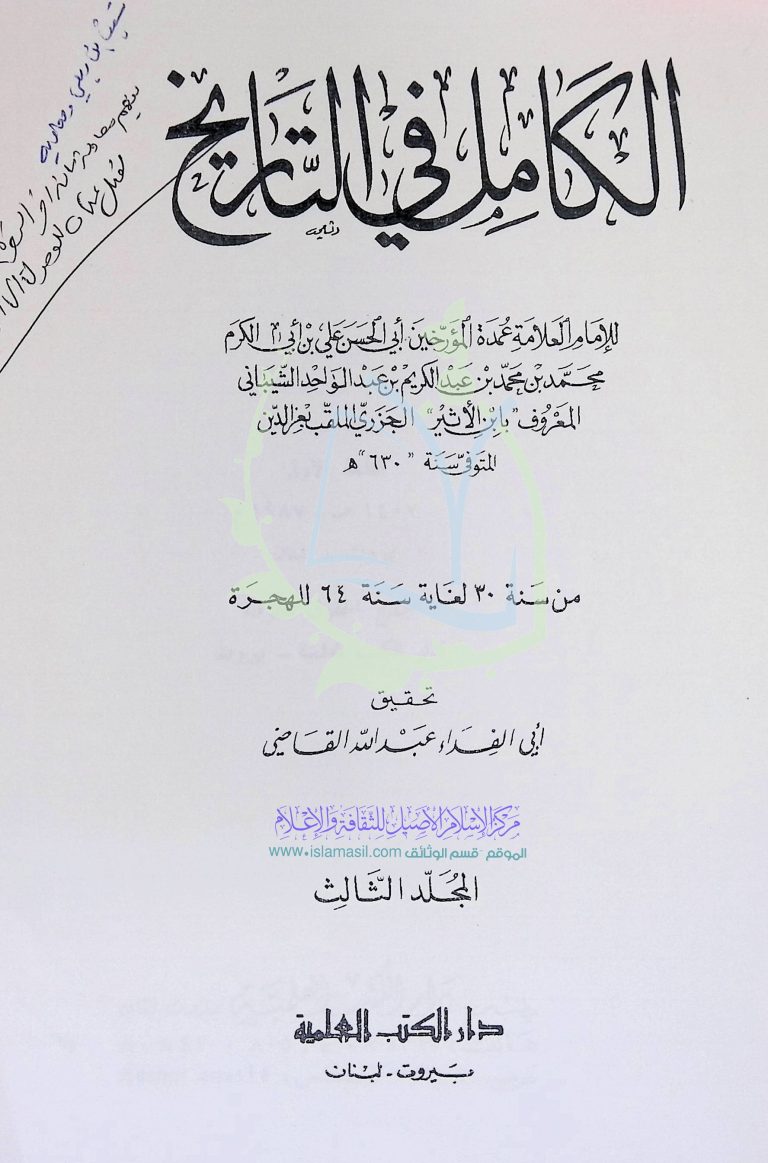 الكامل في التاريخ
للإمام العلامة عمدة المؤرخين أبي الحسن علي بن أبي الكرم
محمد بن محمد بن عبد الكريم بن عبد الواحد الشيباني
المعروف "بابن الأثير" الجزري الملقب بعز الدين
المتوفى سنة "٦٣٠" هـ
من سنة ٣٠ لغاية سنة ٦٤ للهجرة
تحقيق
أبي الفداء عبد الله القاضي
مركز الإسلام الأصيل للثقافة والإعلام
الموقع - قسم الوثائق www.islamasil.com
المجلد الثالث
دار الكتب العلمية
بيروت - لبنان